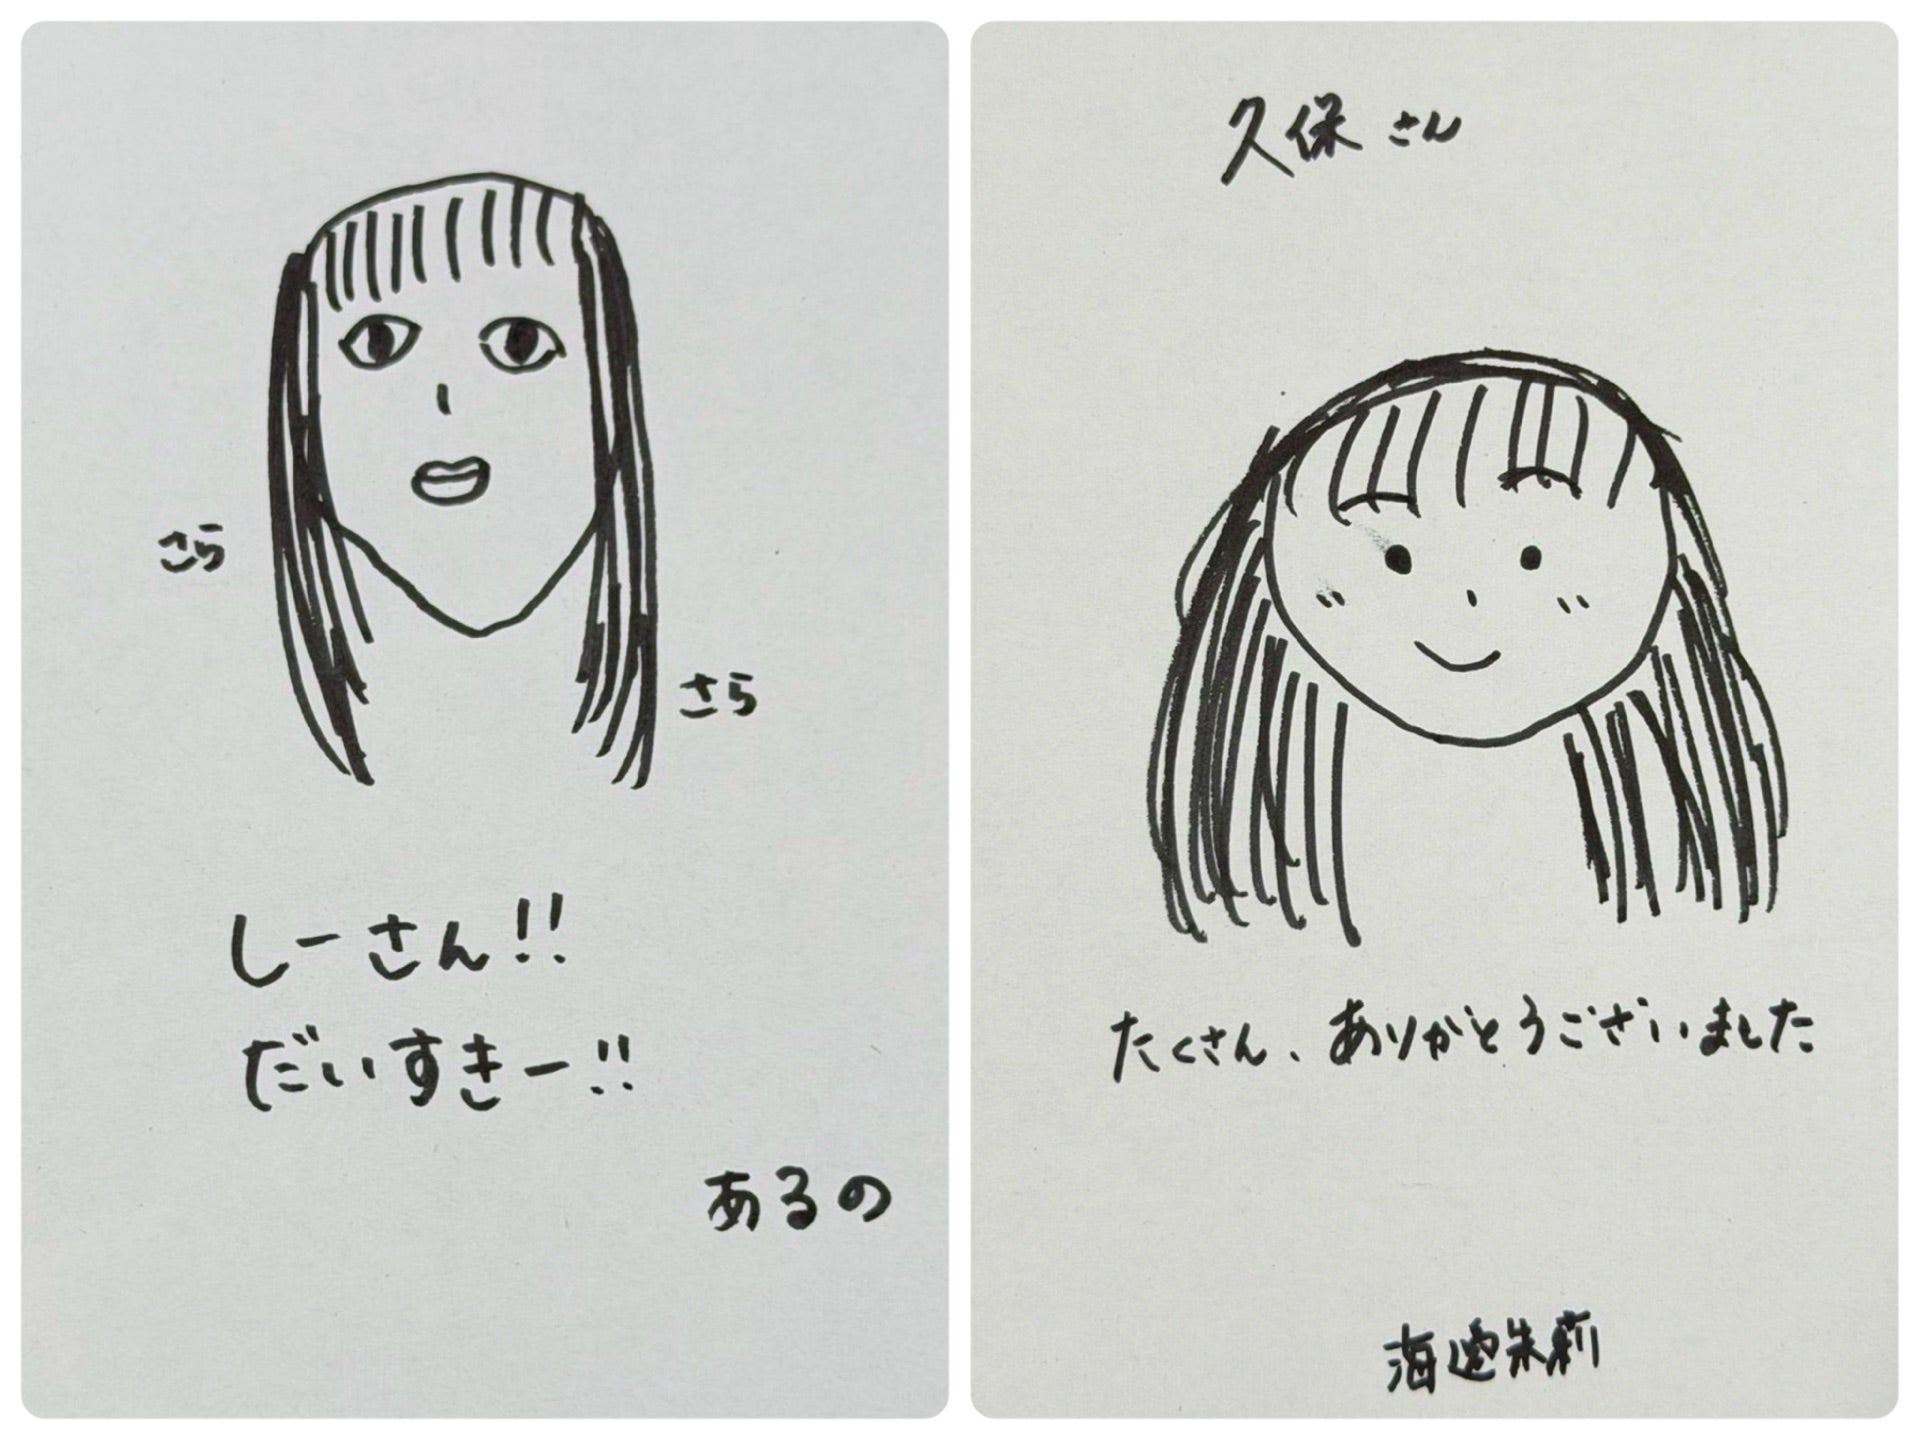 さら
さら
しーさん!!
だいすきー!!
あるの
久保さん
たくさん、ありがとうございました
海邉朱莉